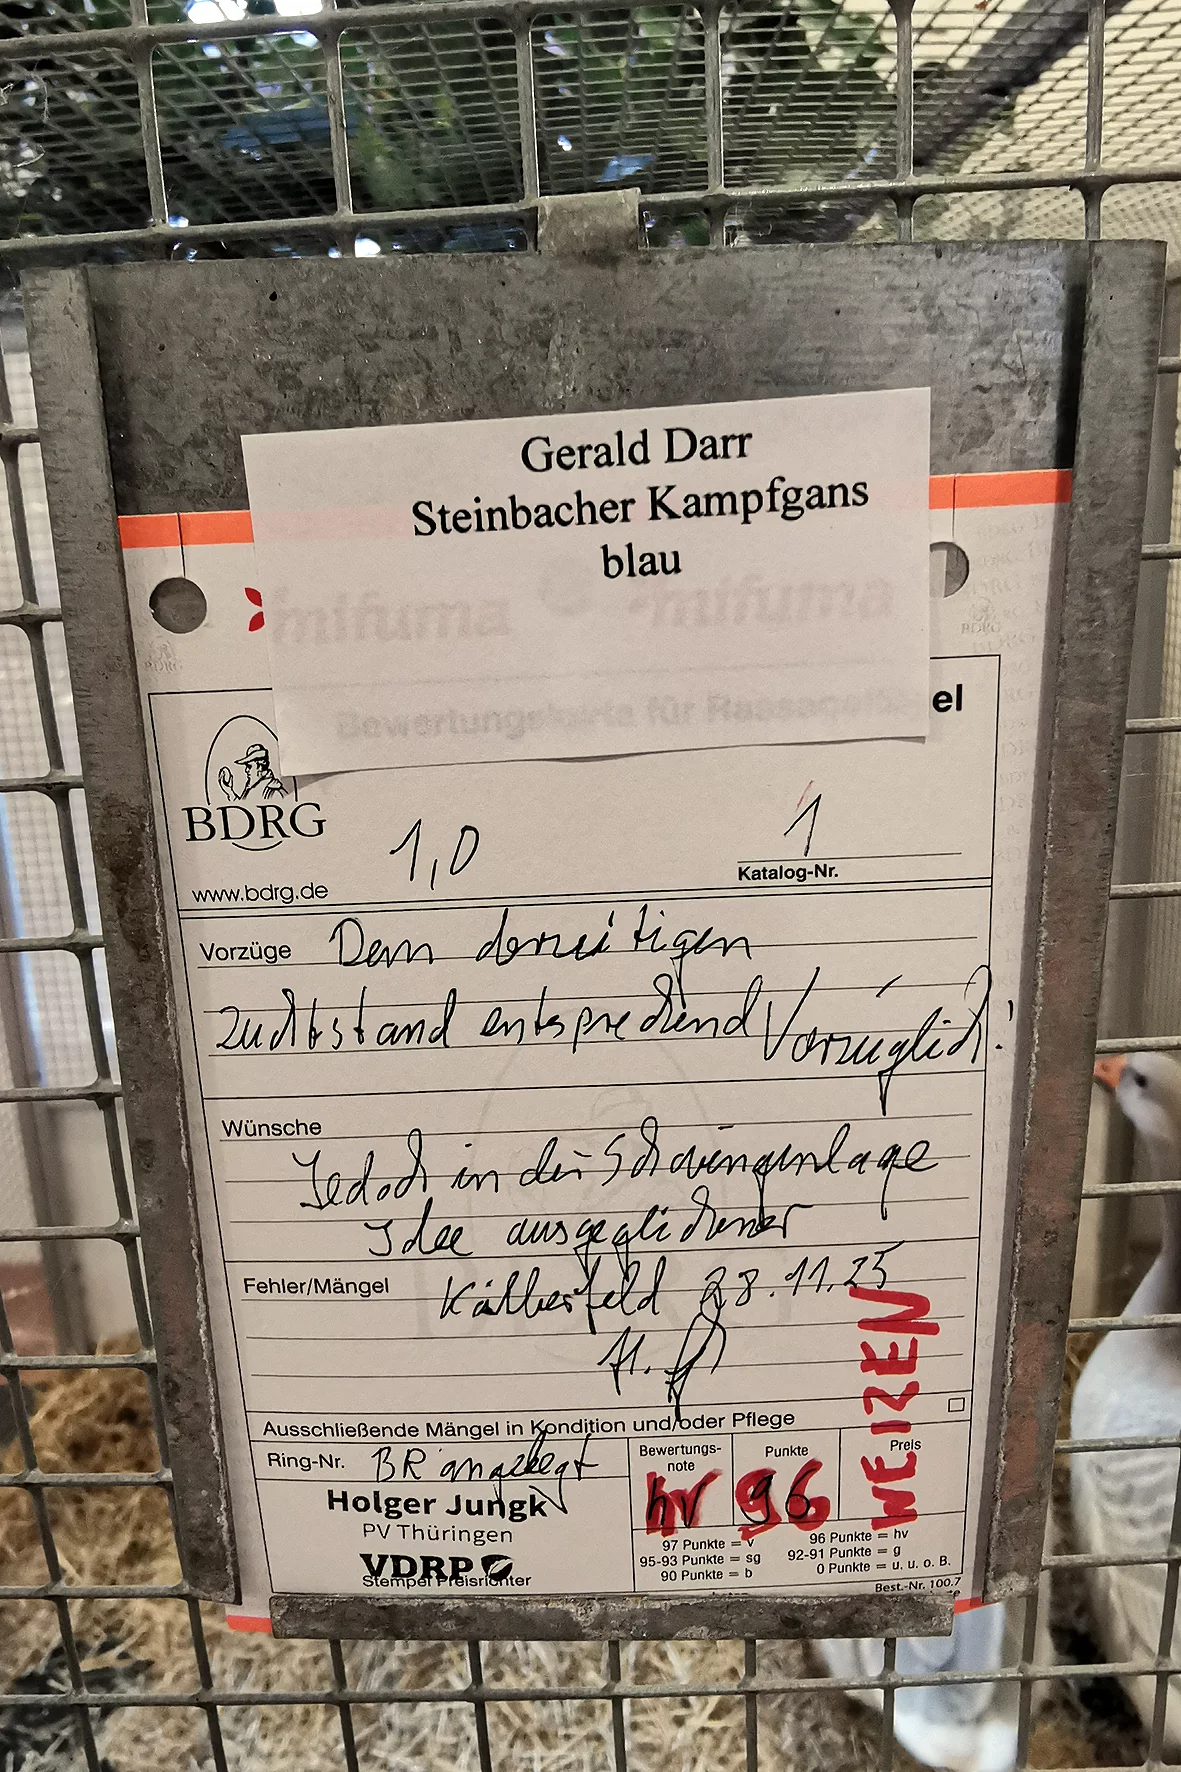 Gerald Darr
Steinbacher Kampfgans
blau
mifuma mifuma
Bewertungskarte für Rassegeflügel
BDRG
1,0
1
www.bdrg.de
Katalog-Nr.
Vorzüge Dem derzeitigen
Zuchtstand entsprechend Vorzüglich!
Wünsche
Jedoch in der Schwingenlage
Idee ausgeglichener
Fehler/Mängel Kälberfeld 28.11.25
WEIZEN
Ausschließende Mängel in Kondition und/oder Pflege
Ring-Nr. BR angelegt
Bewertungs-
note
Punkte
Preis
hv 96
Holger Jungk
PV Thüringen
VDRP
Stempel Preisrichter
97 Punkte = v 96 Punkte = hv
95-93 Punkte = sg 92-91 Punkte = g
90 Punkte = b 0 Punkte = u. u. o. B.
Best.-Nr. 100.7